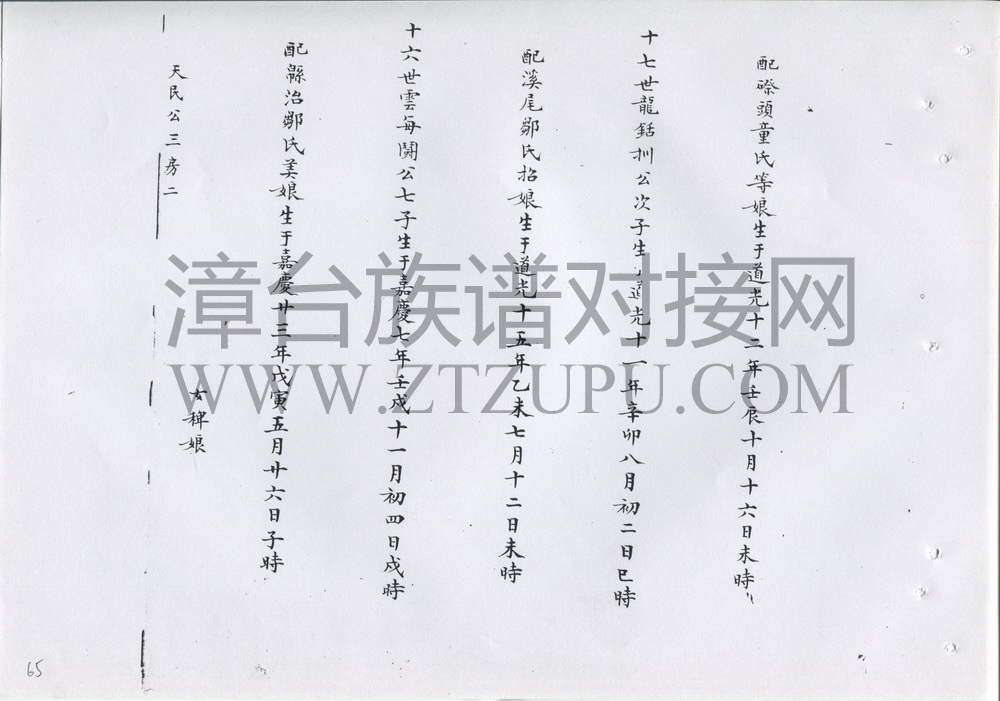 配磜頭童氏等娘生于道光十二年壬辰十月十六日未時
十七世龍銛圳公次子生道光十一年辛卯八月初二日巳時
配溪尾鄒氏招娘生于道光十五年乙未七月十二日未時
十六世雲每開公七子生于嘉慶七年壬戌十一月初四日戌時
配緜治鄒氏美娘生于嘉慶廿三年戊寅五月廿六日子時
女稗娘
天民公三房二
65
漳台族谱对接网
WWW.ZTZUPU.COM